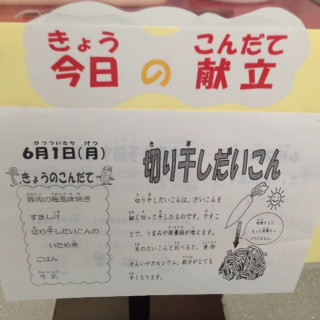 きょう こんだて
今日の献立
がつついたち げつ
6月1日(月)
きょうのこんだて
豚肉の梅風味焼き
すまし汁
切り干しだいこんの
いため煮
ごはん
牛乳
切り干しだいこん
切り干しだいこんは、だいこんを
細く切って干したものです。干すこ
とで、うまみや栄養価が増えます。
生のだいこんと比べると、食物
せんいやカルシウム、鉄分がとても
多くなります。